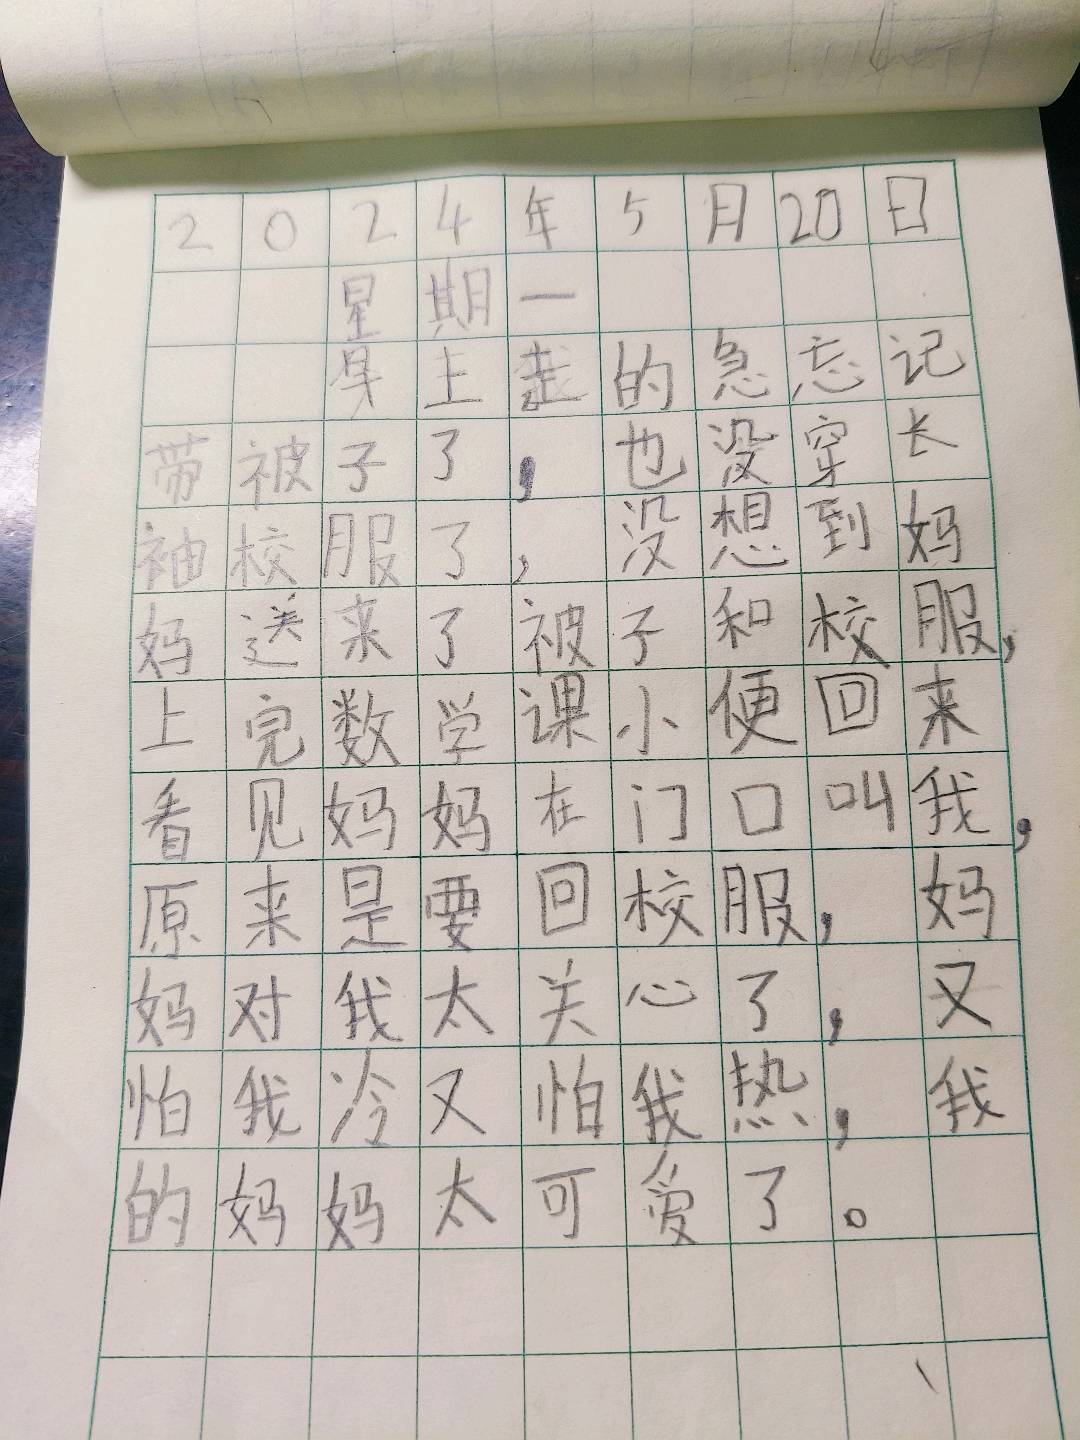 2024年5月20日
星期一
早上走的急忘记
带被子了,也没穿长
袖校服了,没想到妈
妈送来了被子和校服,
上完数学课小便回来
看见妈妈在门口叫我,
原来是要回校服,妈
妈对我太关心了,又
怕我冷又怕我热,我
的妈妈太可爱了。